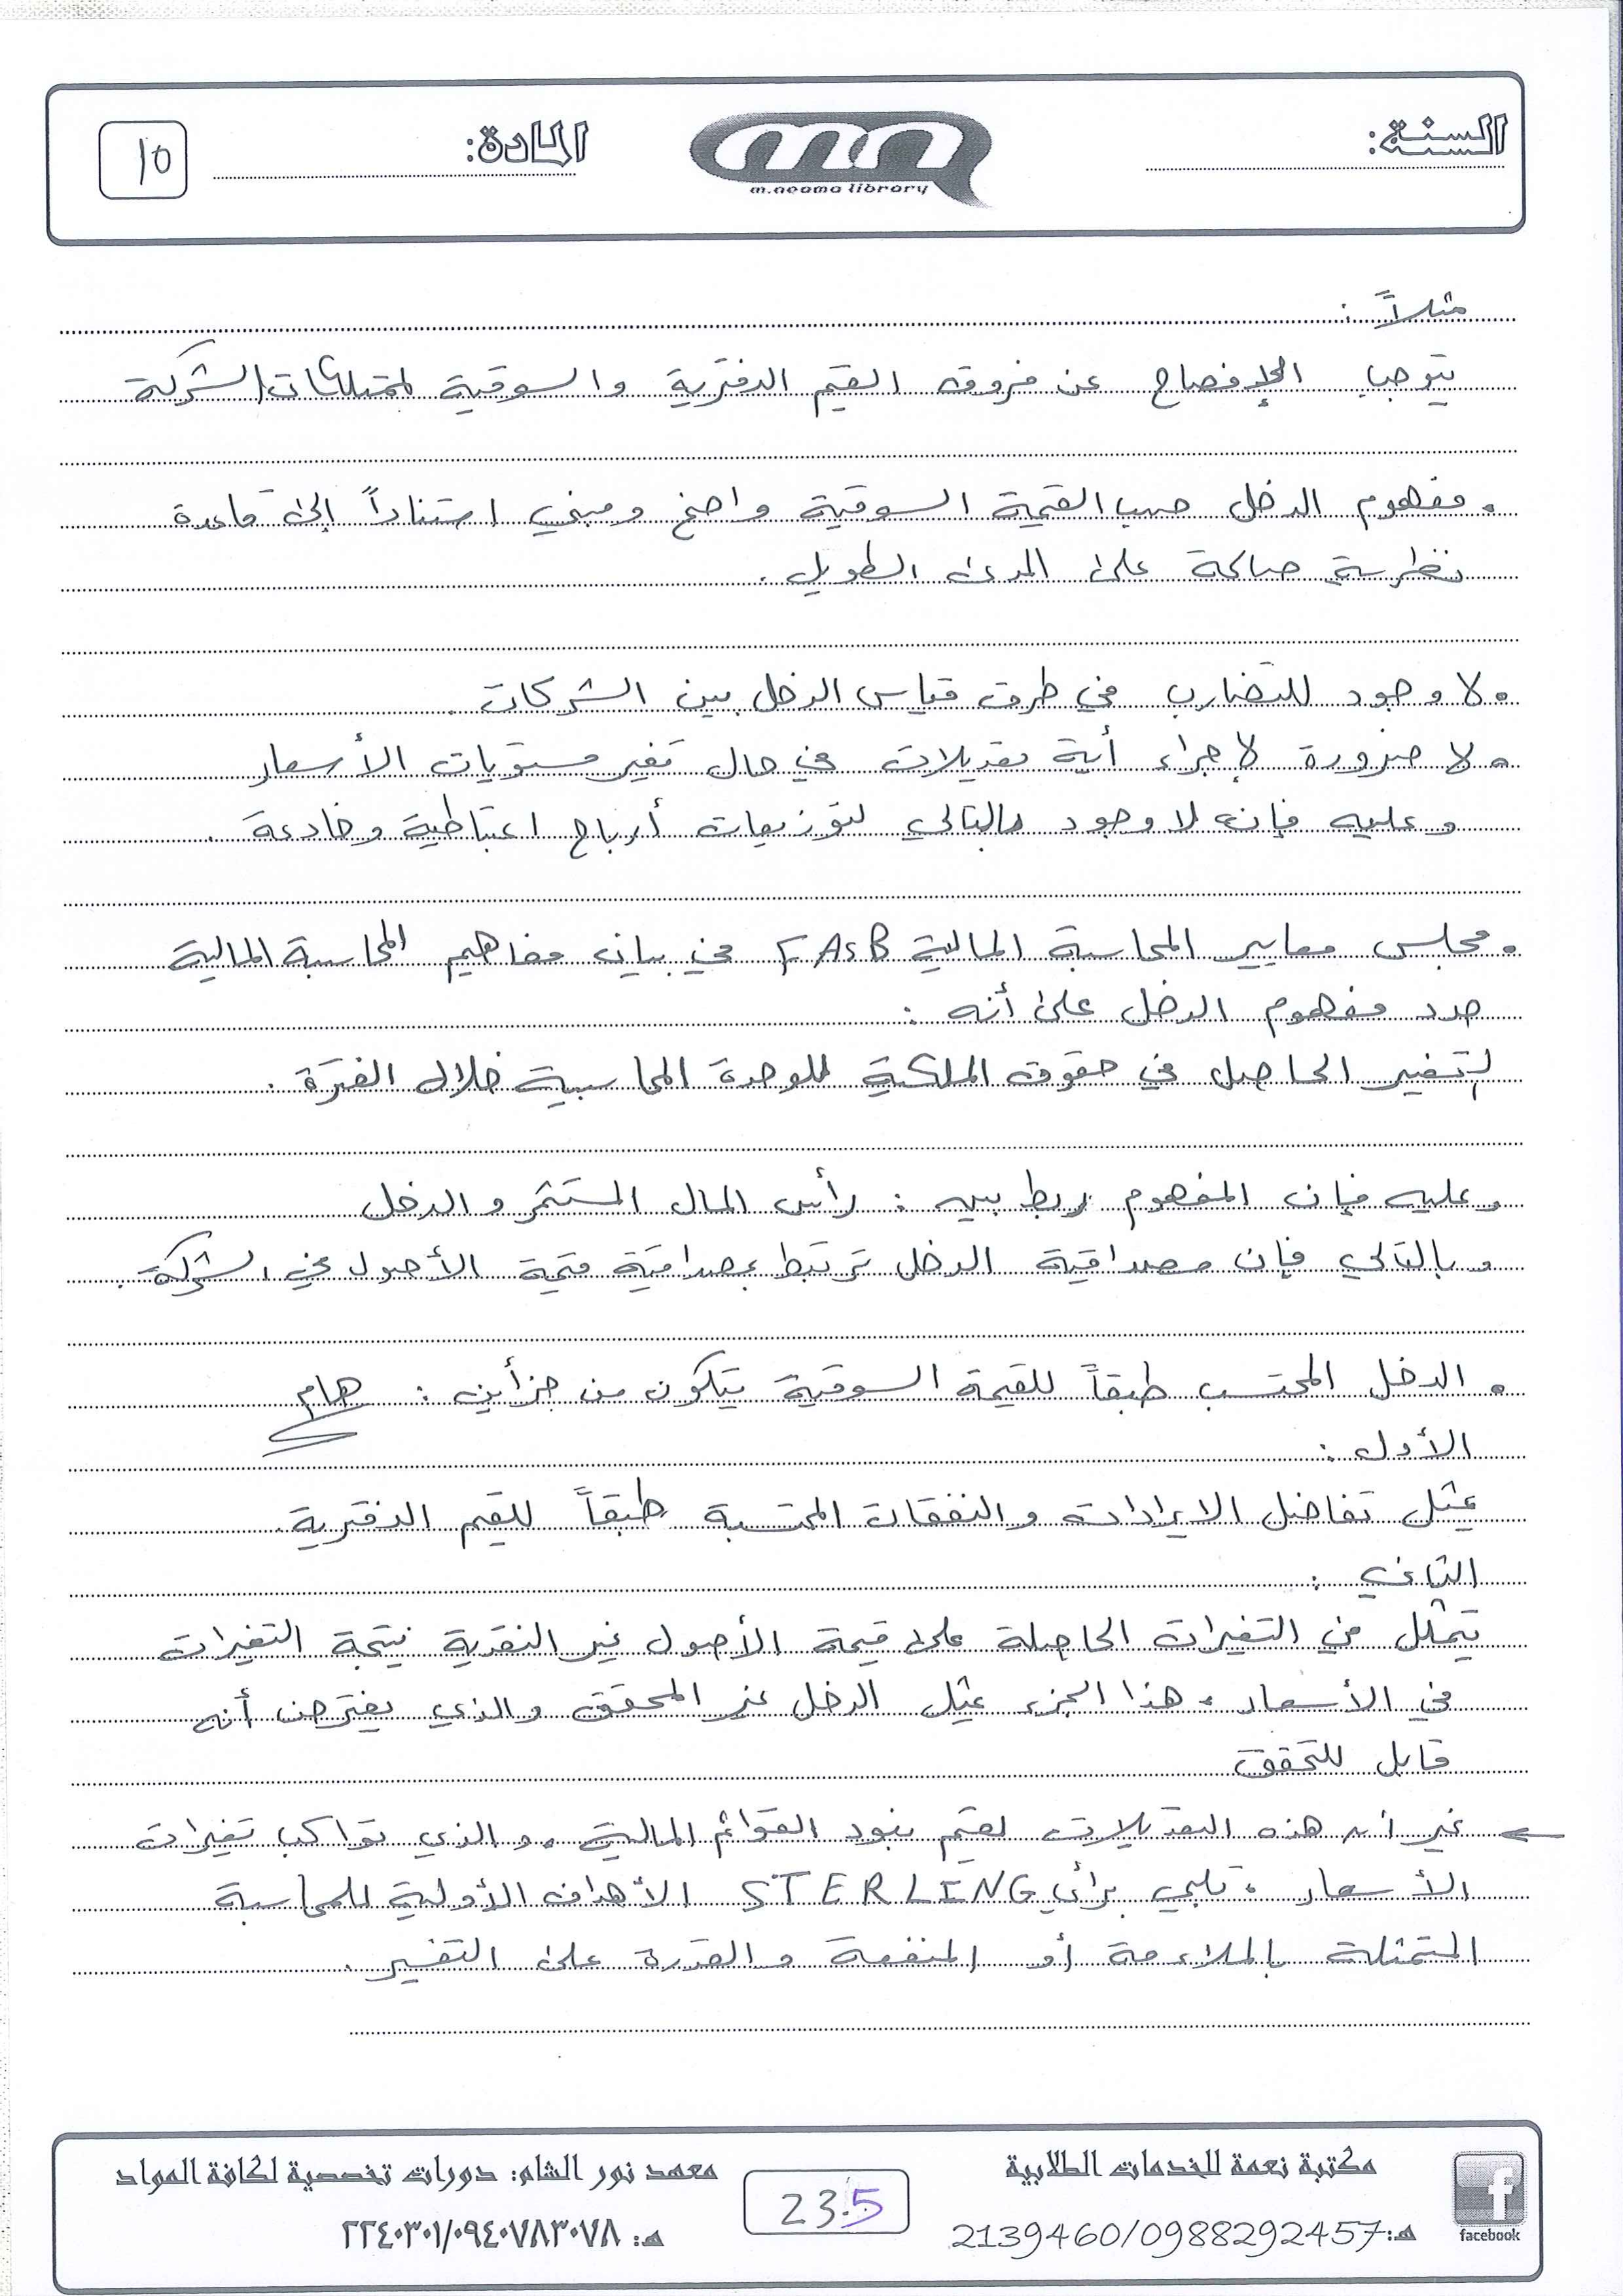 السنة:
m.neama library
المادة:
١٥
مثلاً :
يتوجب الإفصاح عن فروق القيم الدفترية والسوقية لممتلكات الشركة
• مفهوم الدخل حسب القيمة السوقية واضح ومبني استناداً إلى قاعدة
نظرية صالحة على المدى الطويل .
• لا وجود للتضارب في طرق قياس الدخل بين الشركات .
• لا ضرورة لإجراء أية تعديلات في حال تغير مستويات الأسعار
وعليه فإن لا وجود بالتالي لتوزيعات أرباح اعتباطية وخادعة .
• مجلس معايير المحاسبة المالية FASB في بيان مفاهيم المحاسبة المالية
حدد مفهوم الدخل على أنه :
التغير الحاصل في حقوق الملكية للوحدة المحاسبية خلال الفترة .
وعليه فإن المفهوم ربط بين : رأس المال المستثمر والدخل
وبالتالي فإن مصداقية الدخل ترتبط بمصداقية قيمة الأصول في الشركة .
• الدخل المحتسب طبقاً للقيمة السوقية يتكون من جزأين : هام
الأول :
يمثل تفاضل الايرادات والنفقات المحتسبة طبقاً للقيم الدفترية .
الثاني :
يتمثل في التغيرات الحاصلة على قيمة الأصول غير النقدية نتيجة التغيرات
في الأسعار ، هذا الجزء يمثل الدخل غير المحقق والذي يفترض أنه
قابل للتحقق
← غير أن هذه التعديلات لقيم بنود القوائم المالية ، والذي تواكب تغيرات
الأسعار ، تلبي برأي STERLING الأهداف الأولية للمحاسبة
المتمثلة بالملاءمة أو المنفعة والقدرة على التفسير .
مكتبة نعمة للخدمات الطلابية
هـ: 2139460/0988292457
facebook
23.5
معهد نور الشام: دورات تخصصية لكافة المواد
هـ: ٢٢٤٠٣٠١/٠٩٤٠٧٨٣٠٧٨